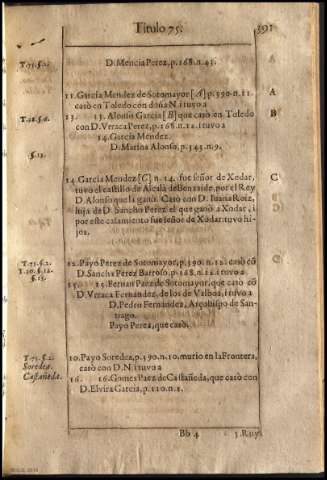 Titulo 75. 391
T.75.§.1. D. Mencia Perez, p.168.n.43. A
11. Garcia Mendez de Sotomayor [A] p.390.n.11.
carò en Toledo con doña N. i tuvo a
T.28.§.6. 13. 13. Alonso Garcia [B] que carò en Toledo B
con D. Vrraca Perez, p.168.n.12. i tuvo a
14. Garcia Mendez.
§.13. D. Marina Alonso, p.145.n.9.
14. Garcia Mendez [C] n. 14. fue señor de Xodar, C
tuvo el castillo de Alcalà de Bençaide, por el Rey
D. Alonso que la ganò. Carò con D. Iuana Roiz,
hija de D. Sancho Perez el que ganò a Xodar; i
por este casamiento fue señor de Xodar. tuvo hi-
jos.
T.75.§.2. 12. Payo Perez de Sotomayor, p.390.n.12. carò cõ
T.30.§.12. D. Sancha Perez Barroso, p.168.n.11. i tuvo a
§.13. 15. 15. Fernan Paez de Sotomayor, que carò cõ
D. Vrraca Fernandez, de los de Valboa, i tuvo a
D. Pedro Fernandez, Arçobispo de San-
tiago.
Payo Perez, que carò.
T.75.§.2. 10. Payo Soredea, p.390.n.10. murio en la Frontera,
Soredea. carò con D. N. i tuvo a
Castañeda. 16. 16. Gomes Paez de Castañeda, que carò con
D. Elvira Garcia, p.120.n.2.
Bb 4 5. Ruy